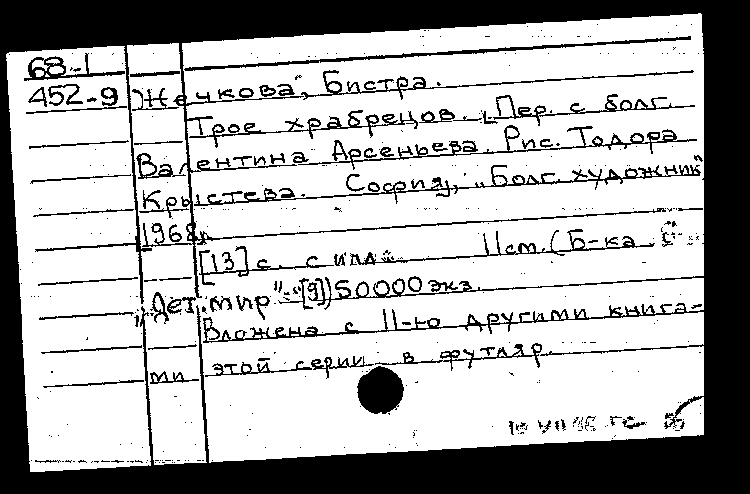 68-1
452-9 Жечкова, Бистра.
Трое храбрецов. [Пер. с болг.
Валентина Арсеньева. Рис. Тодора
Крыстева. София, „Болг. художник",
1968].
[13] с. с илл. 11 см. (Б-ка
„Дет. мир". [9]) 50000 экз.
Вложена с 11-ю другими книга-
ми этой серии в футляр.